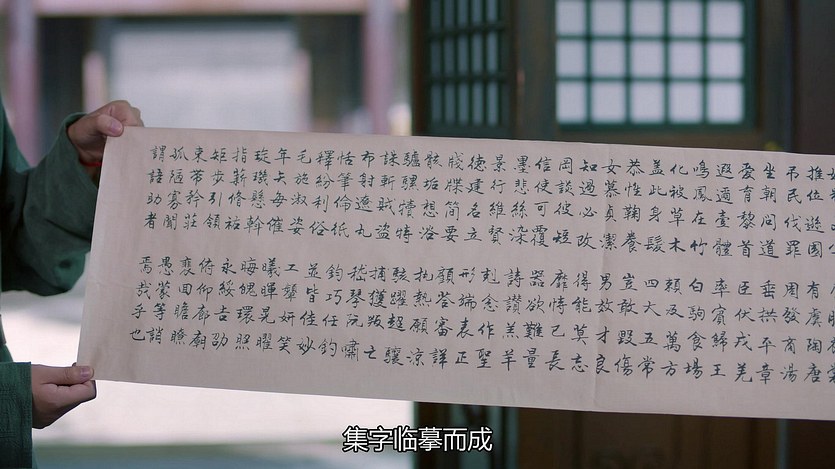 推位遜國
有虞陶唐
吊民伐罪
周發商湯
坐朝問道
垂拱平章
愛育黎首
臣伏戎羌
遐邇壹體
率賓歸王
鳴鳳在竹
白駒食場
化被草木
賴及萬方
蓋此身髮
四大五常
恭惟鞠養
豈敢毀傷
女慕貞潔
男效才良
知過必改
得能莫忘
罔談彼短
靡恃己長
信使可覆
器欲難量
墨悲絲染
詩讚羔羊
景行維賢
剋念作聖
德建名立
形端表正
牋牒簡要
顧答審詳
骸垢想浴
執熱願涼
驢騾犢特
駭躍超驤
誅斬賊盜
捕獲叛亡
布射遼丸
嵇琴阮嘯
恬筆倫紙
鈞巧任釣
釋紛利俗
並皆佳妙
毛施淑姿
工顰妍笑
年矢每催
曦暉晃曜
璇璣懸斡
晦魄環照
指薪修祜
永綏吉劭
矩步引領
俯仰廊廟
束帶矜莊
裵回瞻眺
孤陋寡聞
愚蒙等誚
謂語助者
焉哉乎也
集字临摹而成